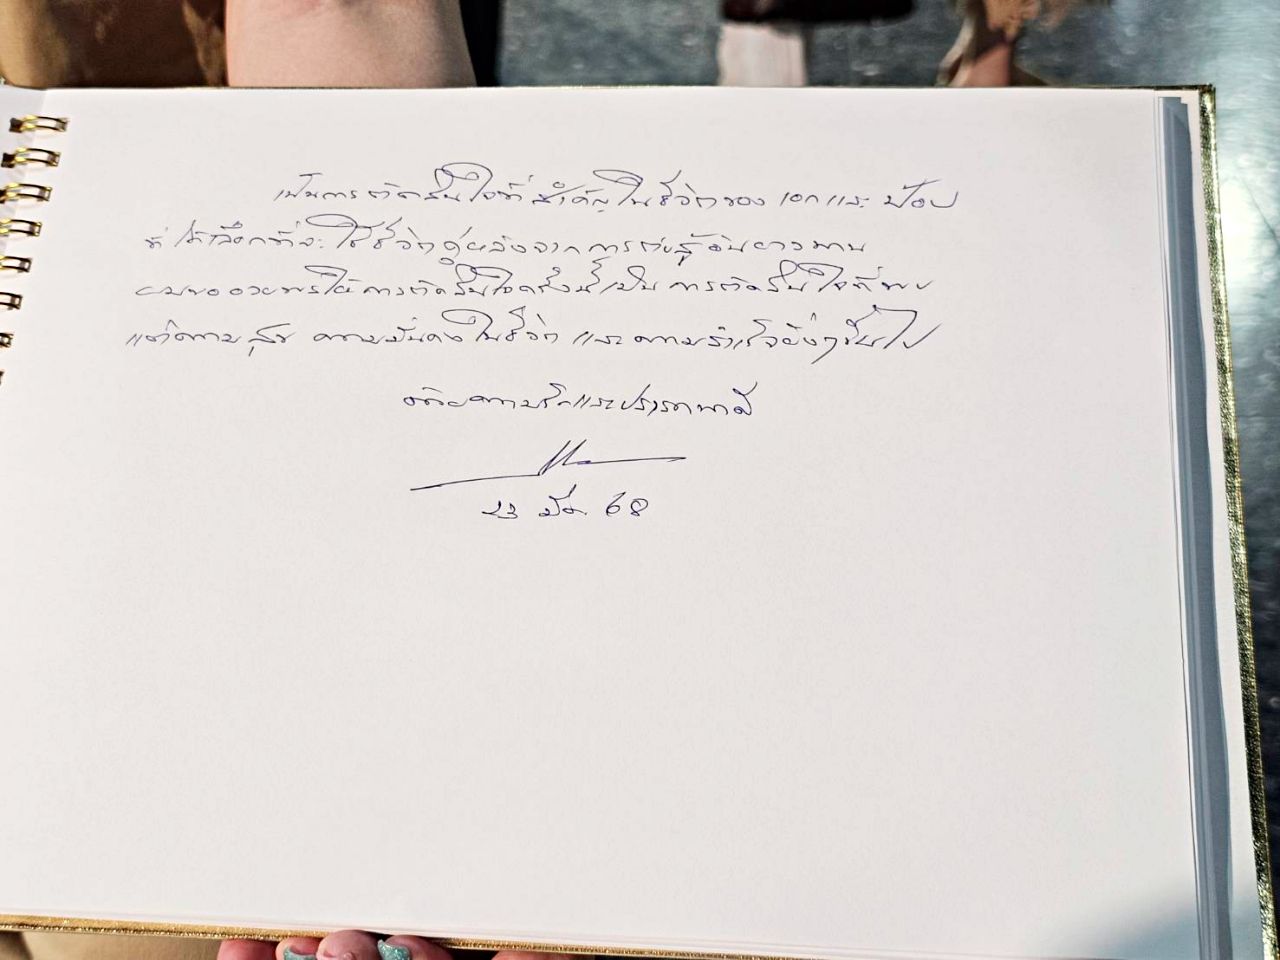 เป็นการตัดสินใจที่สำคัญในชีวิตของ เอกและ ป๊อป
ที่ได้เลือกที่จะใช้ชีวิตคู่หลังจากการต่อสู้อันยาวนาน
ผมขออวยพรให้การตัดสินใจครั้งนี้เป็นการตัดสินใจที่พบ
แต่ความสุข ความมั่นคงในชีวิต และความสำเร็จยิ่งๆขึ้นไป
ด้วยความรักและปรารถนาดี
23 มีค. 68